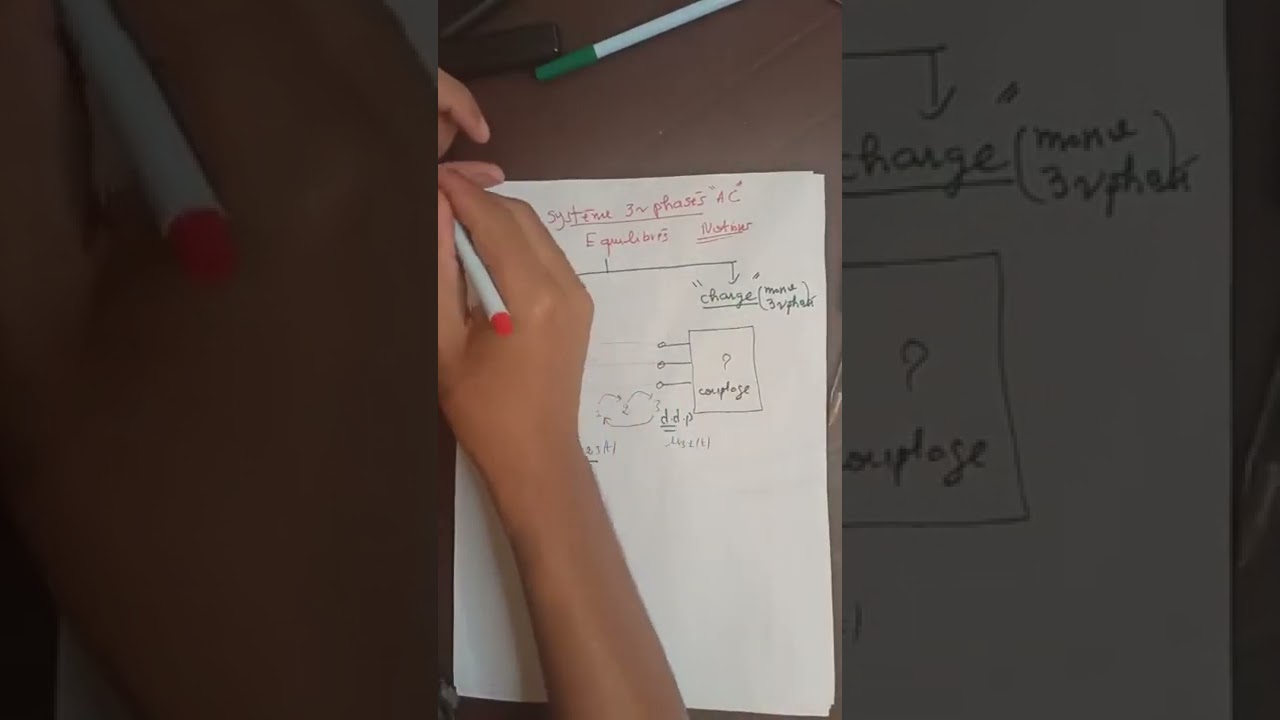 Système 3~phasés "AC"
Equilibrés Notions
"charge" (mono
3~phasé)
?
couplage
1 2 3
d.d.p
23(t) u31(t)